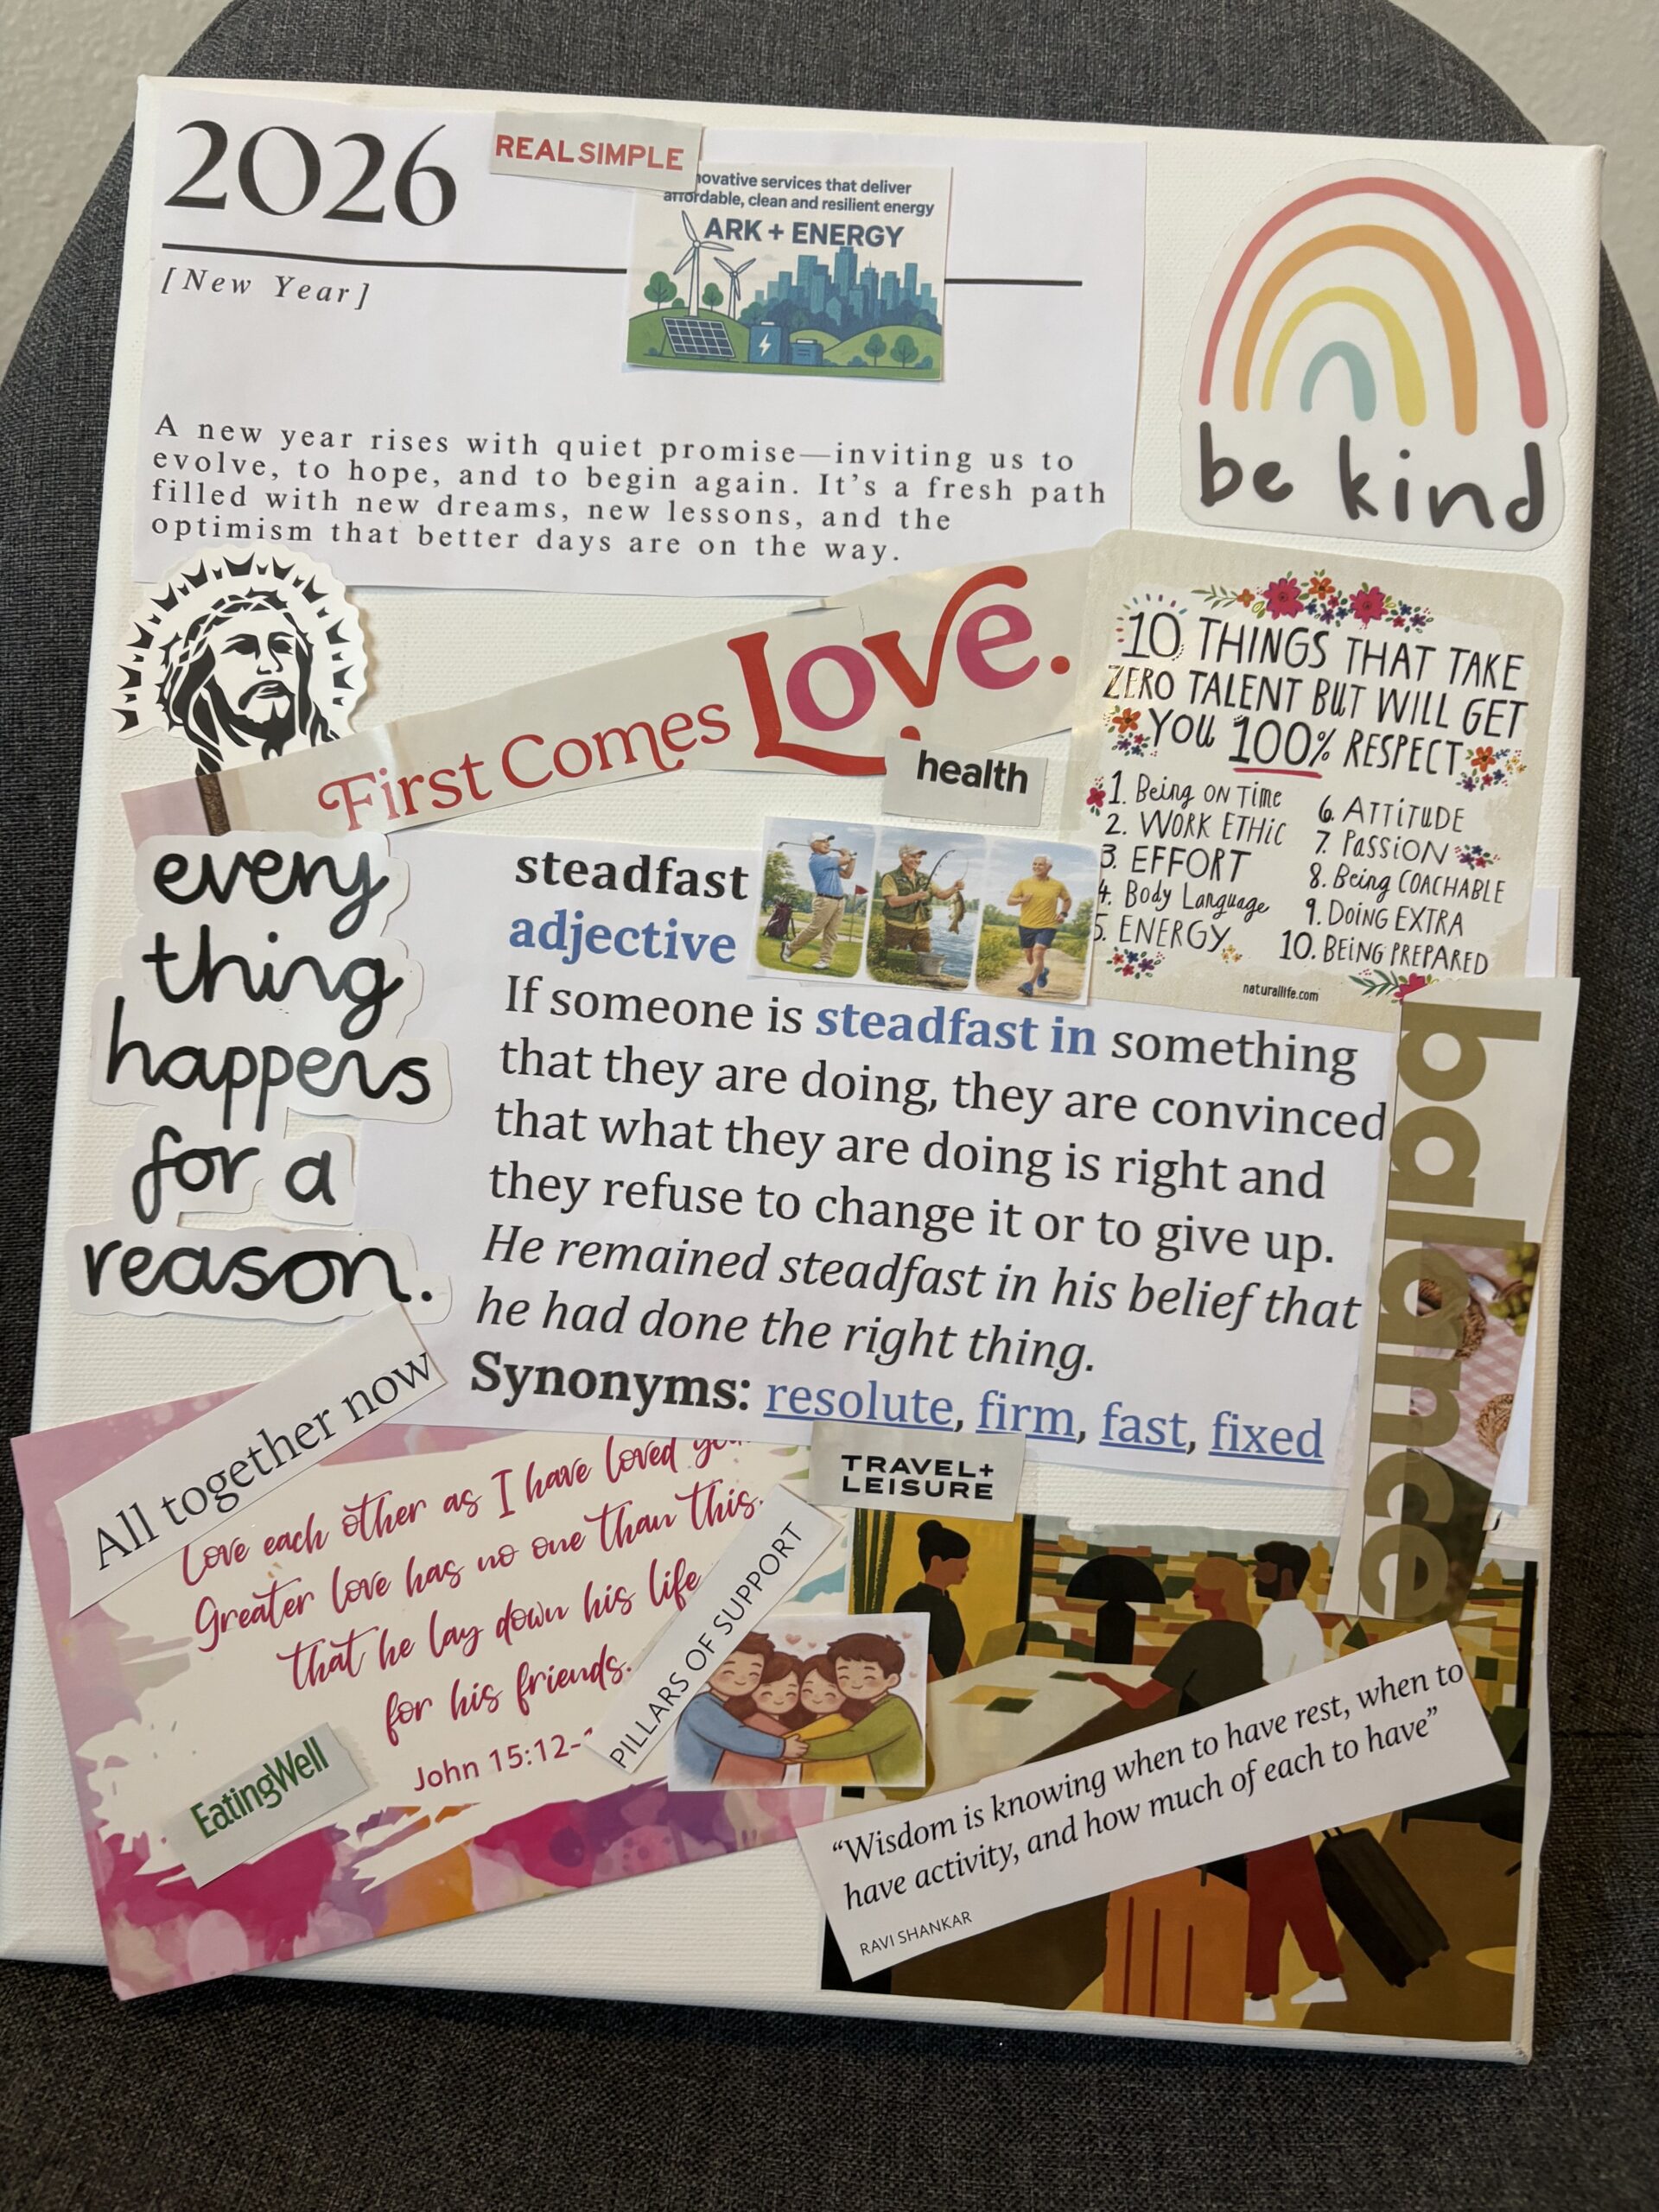 2026
REALSIMPLE
[New Year]
novative services that deliver
affordable, clean and resilient energy
ARK + ENERGY
A new year rises with quiet promise—inviting us to
evolve, to hope, and to begin again. It's a fresh path
filled with new dreams, new lessons, and the
optimism that better days are on the way.
be kind
First Comes Love.
health
10 THINGS THAT TAKE
ZERO TALENT BUT WILL GET
YOU 100% RESPECT
1. Being ON Time
2. WORK ETHIC
3. EFFORT
4. Body Language
5. ENERGY
6. ATTITUDE
7. PASSION
8. Being COACHABLE
9. DOING EXTRA
10. BEING PREPARED
naturallife.com
every
thing
happens
for a
reason.
steadfast
adjective
If someone is steadfast in something
that they are doing, they are convinced
that what they are doing is right and
they refuse to change it or to give up.
He remained steadfast in his belief that
he had done the right thing.
Synonyms: resolute, firm, fast, fixed
balance
All together now
Love each other as I have loved
Greater love has no one than this,
that he lay down his life
for his friends.
John 15:12-
EatingWell
PILLARS OF SUPPORT
TRAVEL+
LEISURE
“Wisdom is knowing when to have rest, when to
have activity, and how much of each to have”
RAVI SHANKAR